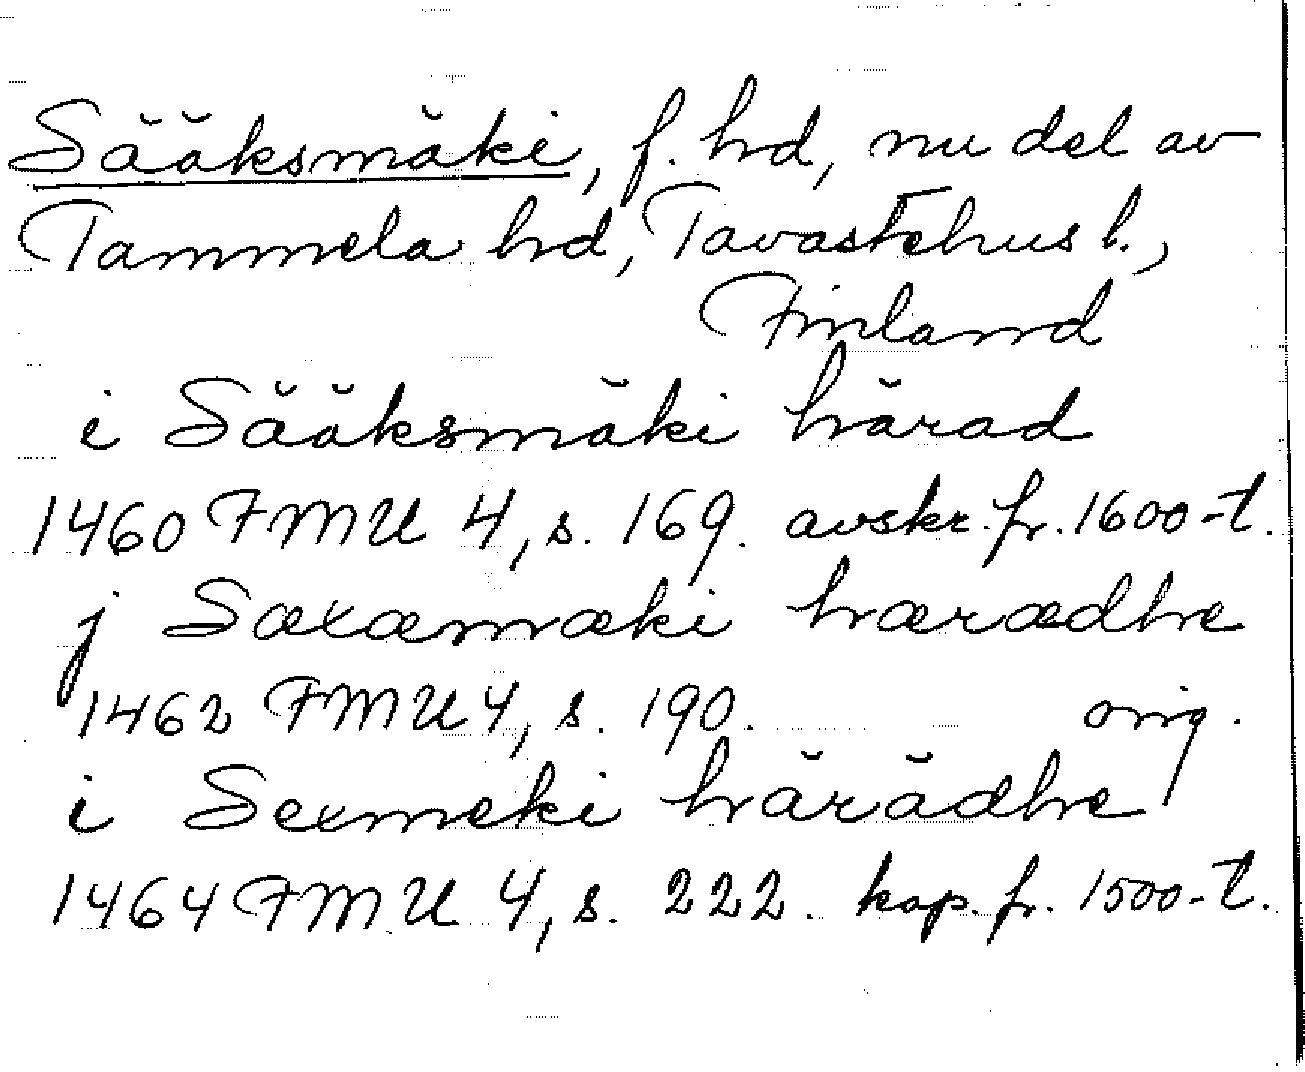 Sääksmäki, f. hd, nu del av
Tammela hd, Tavastehus l.,
Finland
i Sääksmäki härad
1460 FMU 4, s. 169. avskr. fr. 1600-t.
j Sæxæmæki hærædhe
1462 FMU 4, s. 190. orig.
i Sexmeki härädhe
1464 FMU 4, s. 222. kop. fr. 1500-t.